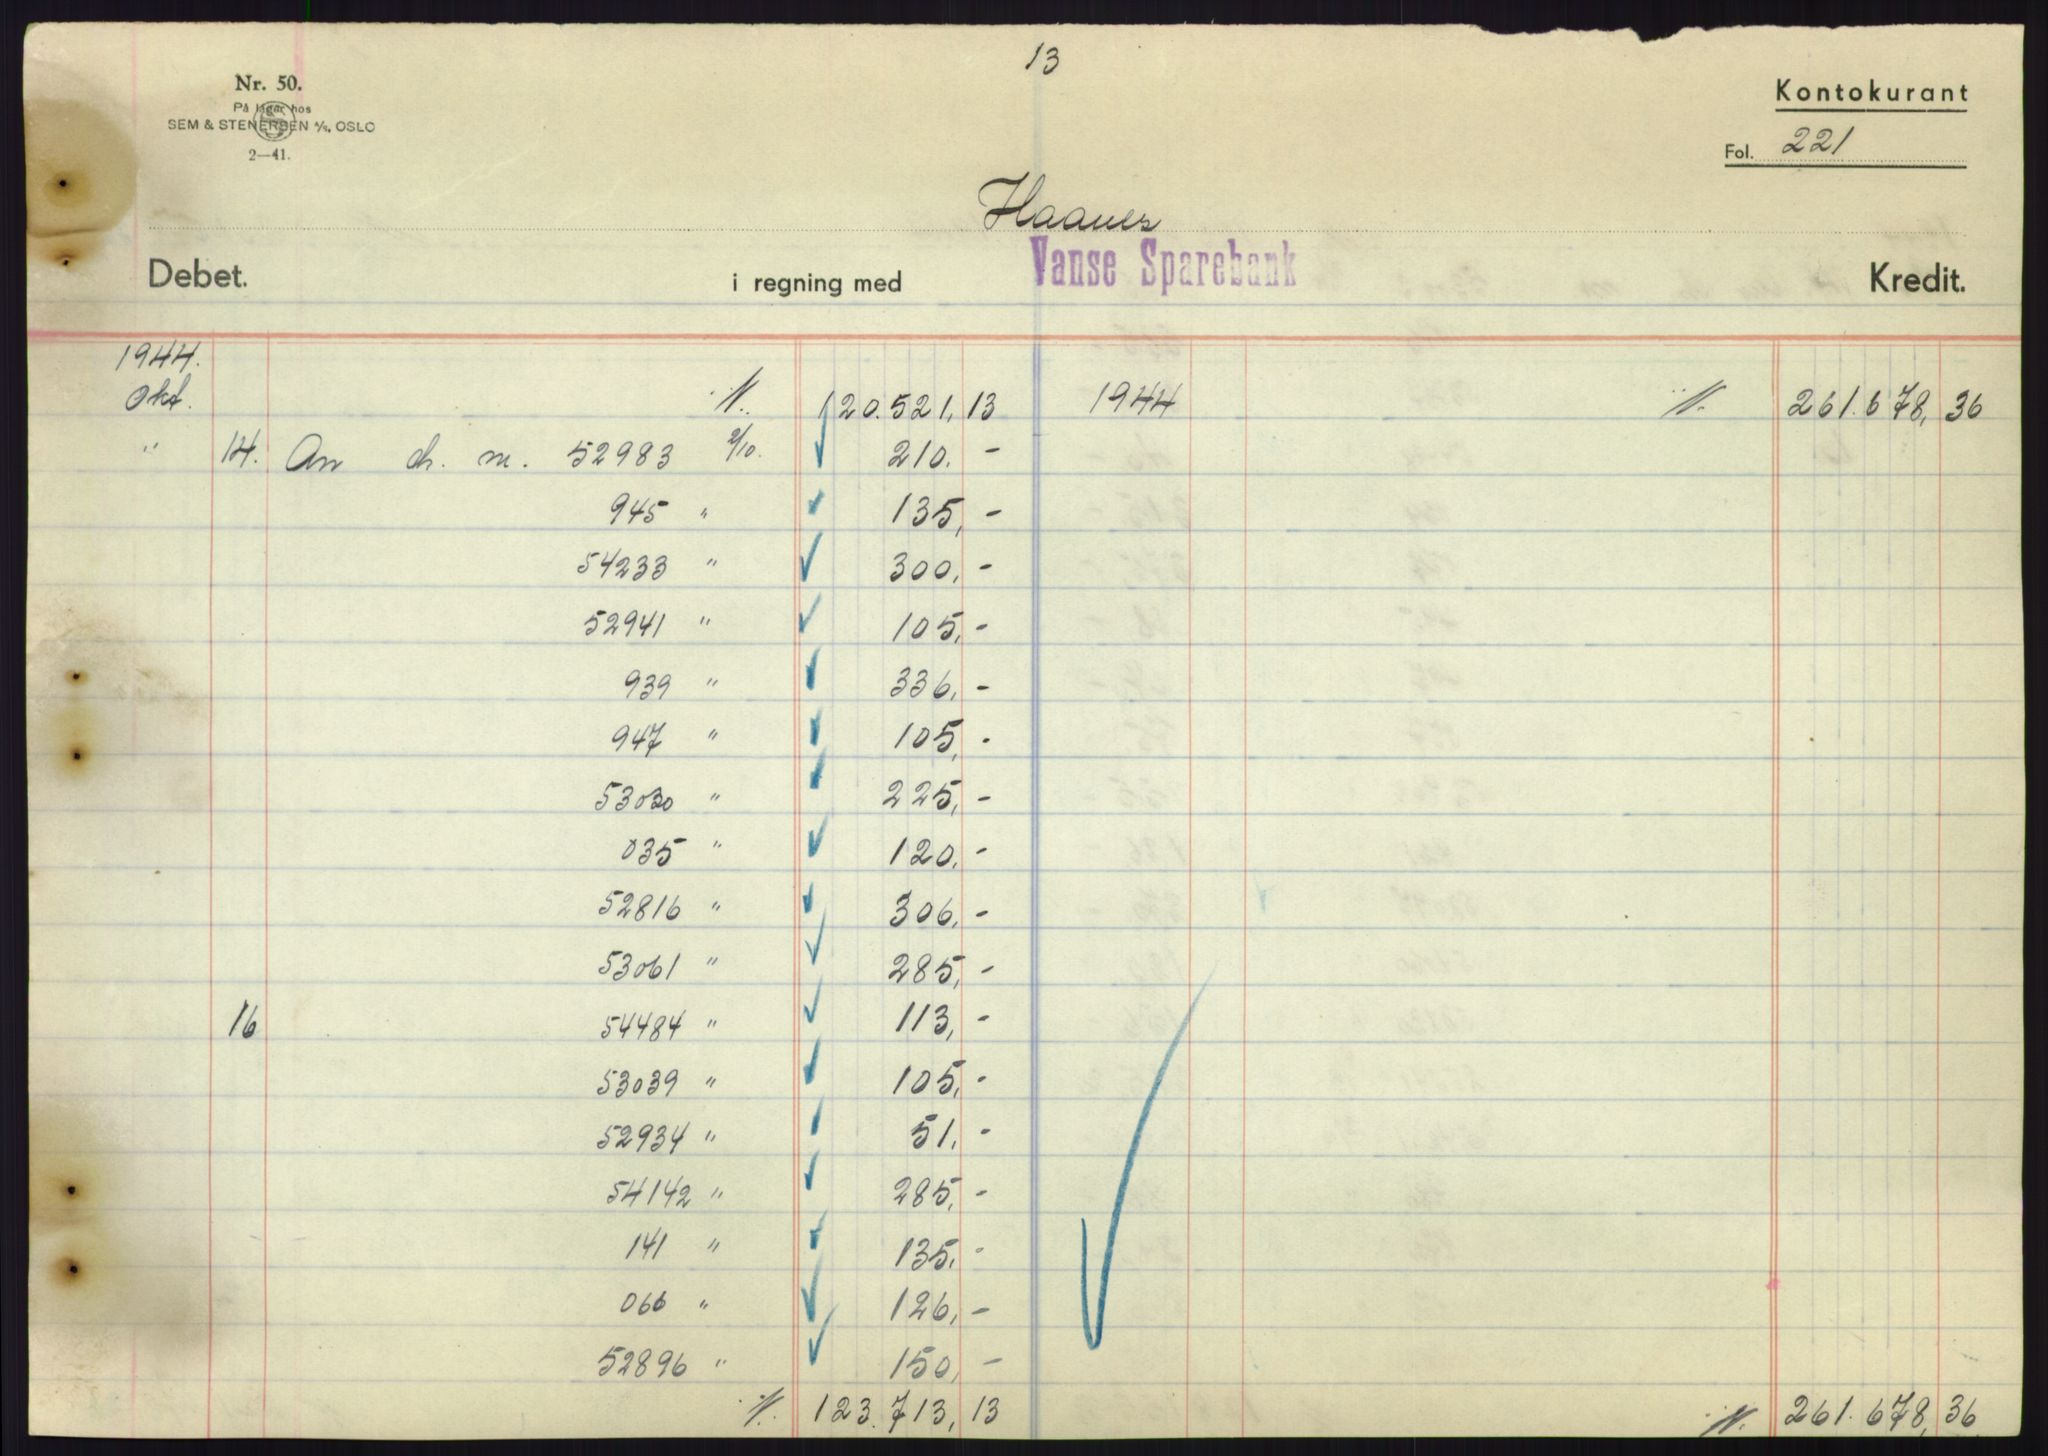 13
Nr. 50.
På lager hos
SEM & STENERSEN A/S, OSLO
2—41.
Kontokurant
Fol. 221
Haanes
Debet. i regning med Vanse Sparebank Kredit.
1944.
Okt. 120.521,13 1944 261.678,36
" 14. An ch. m. 52983 2/10. 210.-
945 " 135,-
54233 " 300,-
52941 " 105,-
939 " 336,-
947 " 105,-
53030 " 225,-
035 " 120,-
52816 " 306,-
53061 " 285,-
16 54484 " 113,-
53039 " 105,-
52934 " 51,-
54142 " 285,-
141 " 135,-
066 " 126,-
52896 " 150,-
123.713,13 261.678,36